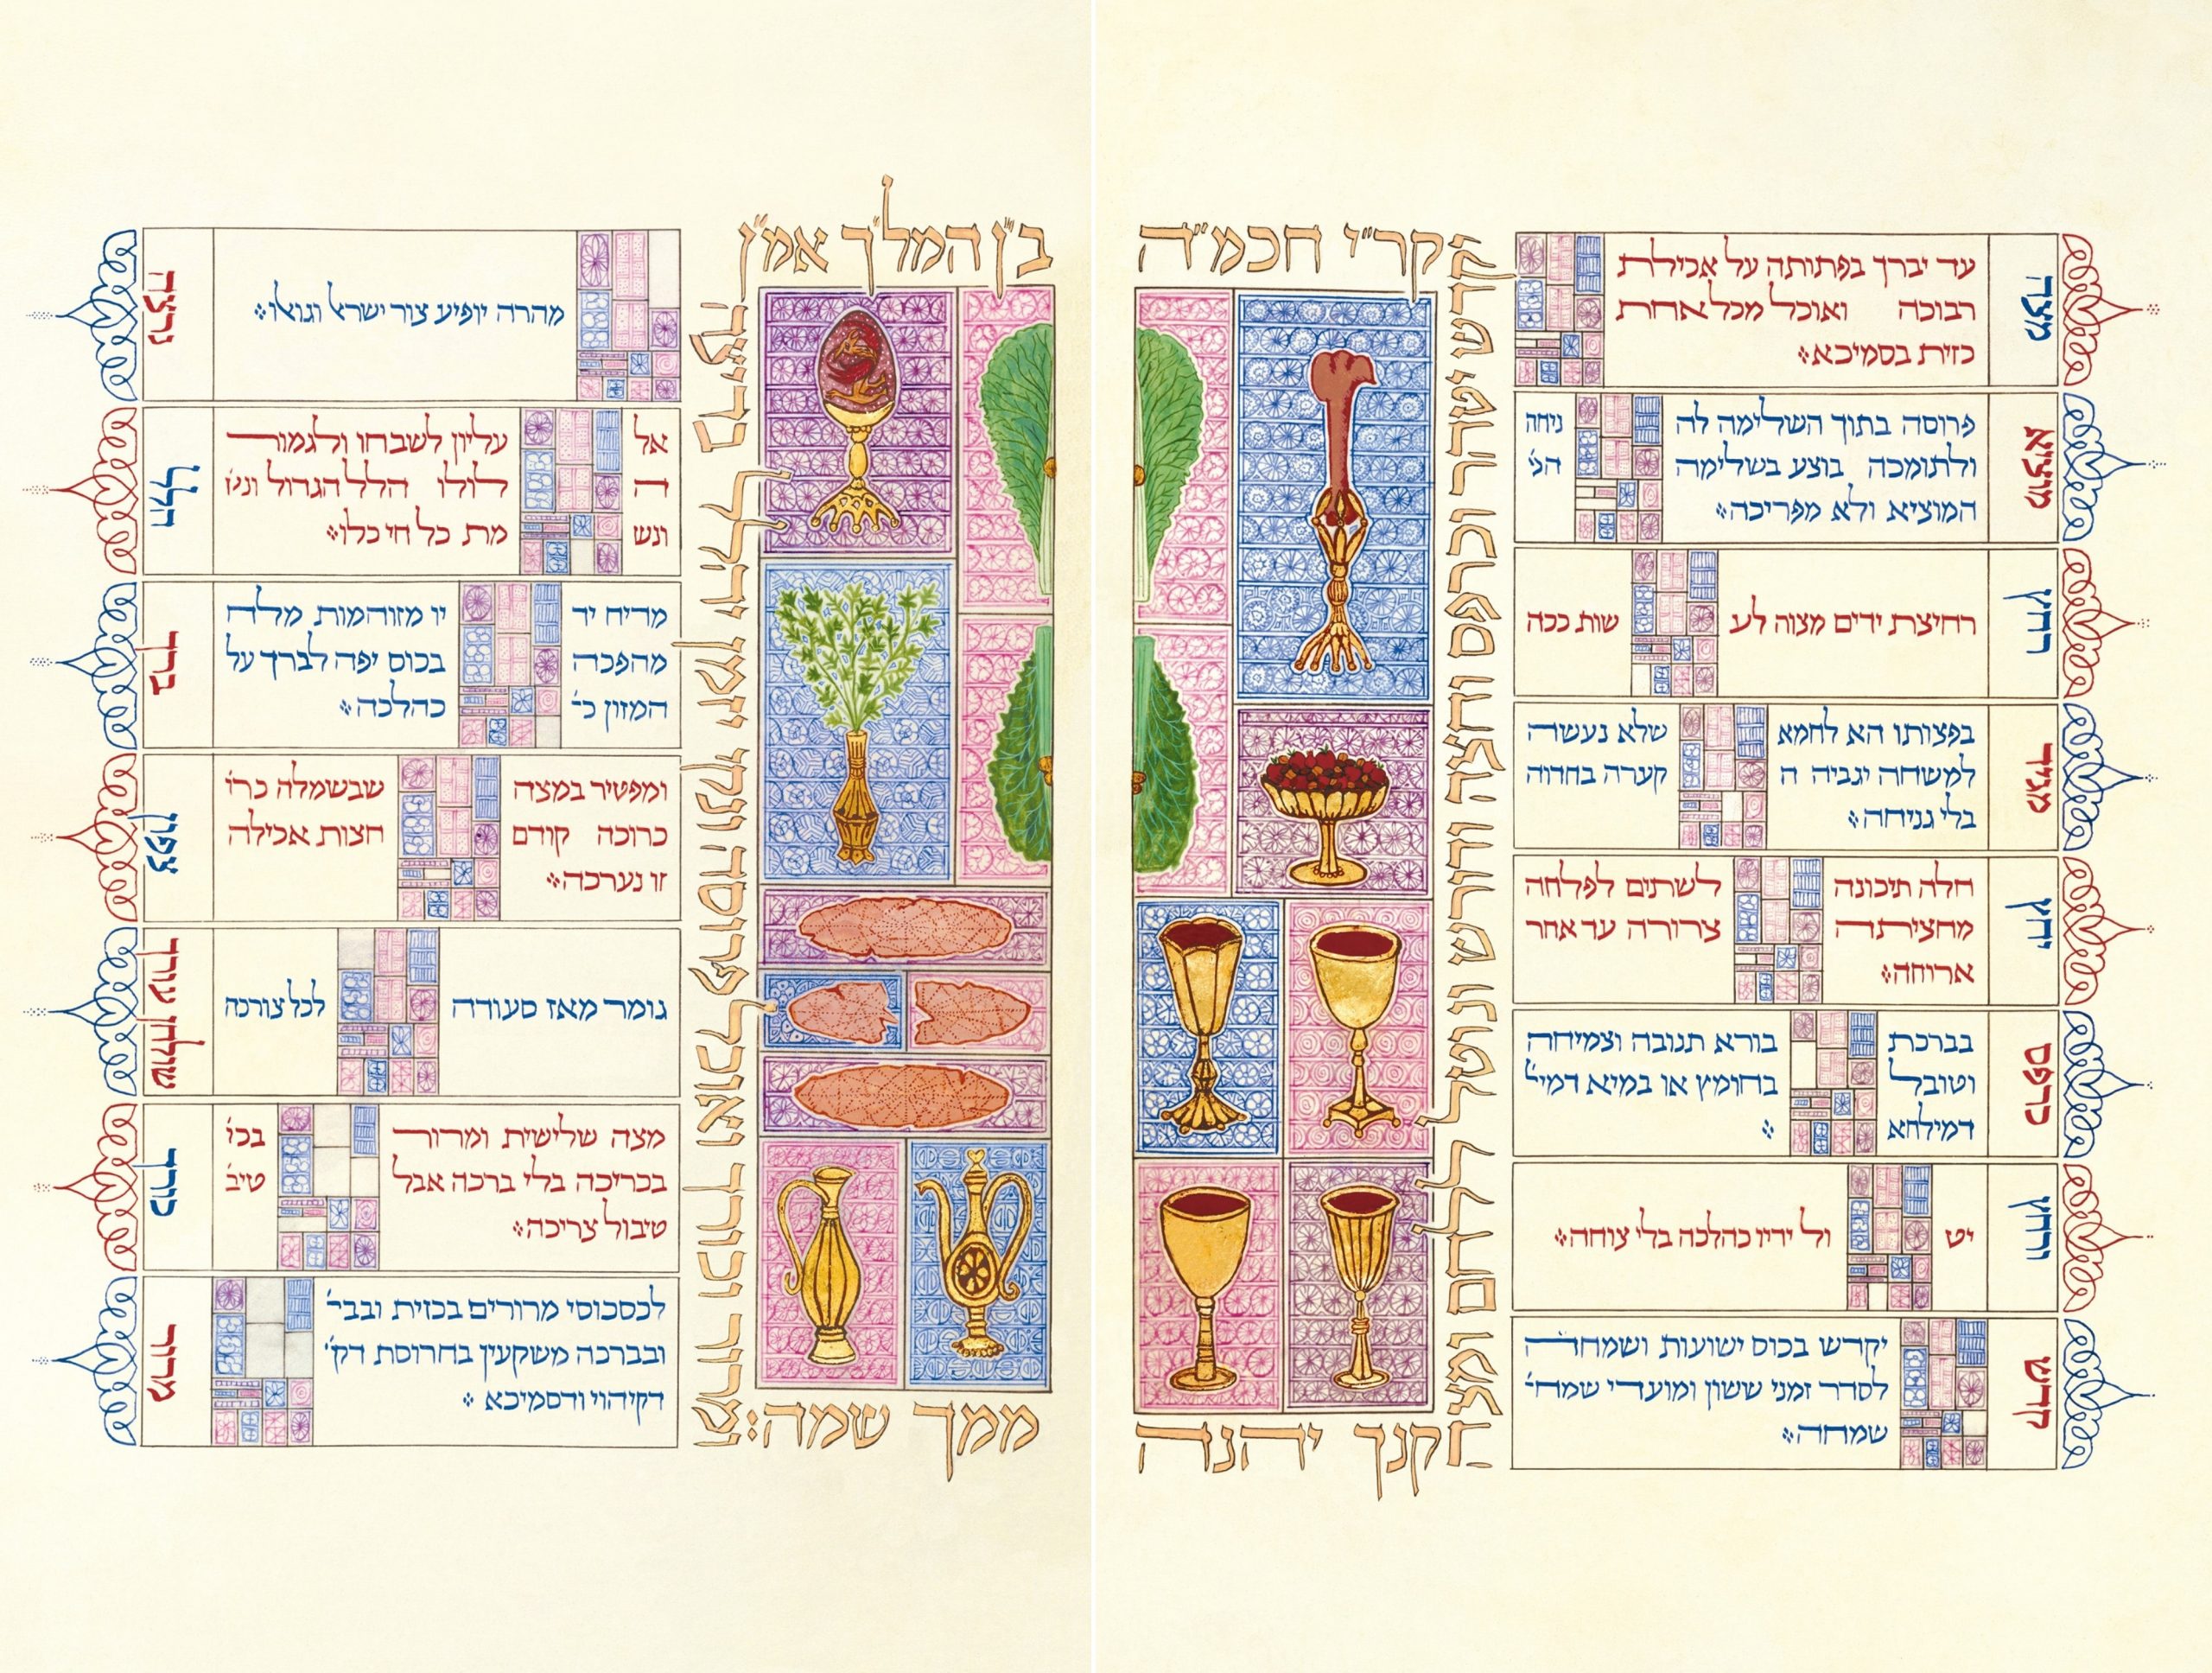 יקר״י חכמ״ה
יקדש יטהר וכרפס וחצה ודורש ונוטל ללחם ומצה
קנך יהנה
מצה
עד יברך בפתותה על אכילת
רבוכה ואוכל מכל אחת
כזית בסמיכא
מוציא
פרוסה בתוך השלימה לה ניחה
ולתומכה בוצע בשלימה הפ׳
המוציא ולא מפריכה
רחץ
רחיצת ידים מצוה לע שות ככה
מגיד
בפצותו הא לחמא שלא נעשה
למשחה יגביה ה קערה בחדוה
בלי גניחה
יחץ
חלה תיכונה לשתים לפלחה
מחציתה צרורה עד אחר
ארוחה
כרפס
בברכת בורא תנובה וצמיחה
וטובל בחומץ או במיא דמי׳
דמילחא
ורחץ
יט ול ידיו כהלכה בלי ציוחה
קדש
יקדש בכוס ישועות ושמחה
לסדר זמני ששון ומועדי שמח׳
שמחה
ב״ן המל״ך אמ״ן
ומרור וכורך ואוכל פרוסה ונקי יזמן יהלל בריצה
ממך שמה:
נרצה
מהרה יופיע צור ישראל וגואלו
הלל
אל עליון לשבחו ולגמור
ה לולו הלל הגדול ונש׳
ונש מת כל חי כלו
ברך
מדיח יד יו מזוהמות מלח
מהפכה בכוס יפה לברך על
המזון כ׳ כהלכה
צפון
ומפטיר במצה שבשמלה כרו׳
כרוכה קודם חצות אכילה
זו נערכה
שולחן עורך
גומר מאז סעודה לכל צורכה
כורך
מצה שלישית ומרור בכו׳
בכריכה בלי ברכה אבל טיב׳
טיבול צריכה
מרור
לכסכוסי מרורים בכזית ובבר׳
ובברכה משקעין בחרוסת דק׳
דקיהוי ודסמיכא